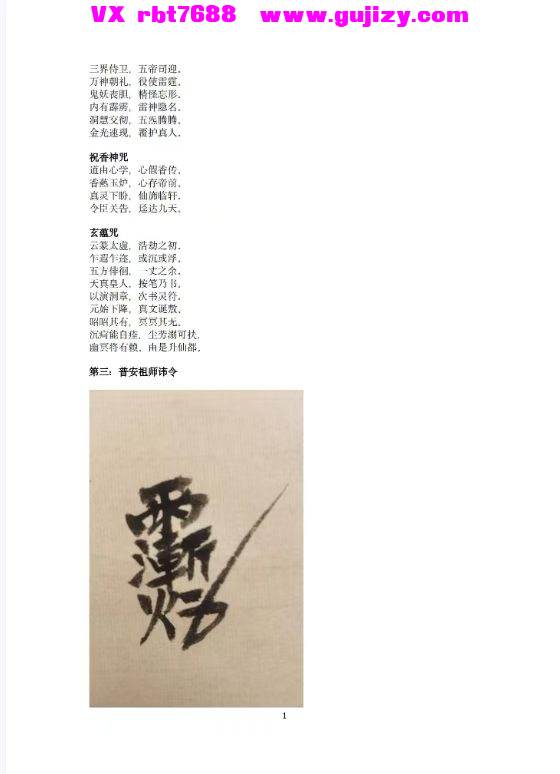 VX rbt7688 www.gujizy.com
三界侍卫，五帝司迎。
万神朝礼，役使雷霆。
鬼妖丧胆，精怪忘形。
内有霹雳，雷神隐名。
洞慧交彻，五炁腾腾。
金光速现，覆护真人。
祝香神咒
道由心学，心假香传。
香爇玉炉，心存帝前。
真灵下盼，仙旆临轩。
令臣关告，迳达九天。
玄蕴咒
云篆太虚，浩劫之初。
乍遐乍迩，或沉或浮。
五方徘徊，一丈之余。
天真皇人，按笔乃书。
以演洞章，次书灵符。
元始下降，真文诞敷。
昭昭其有，冥冥其无。
沉疴能自痊，尘劳溺可扶。
幽冥将有赖，由是升仙都。
第三：普安祖师讳令
1